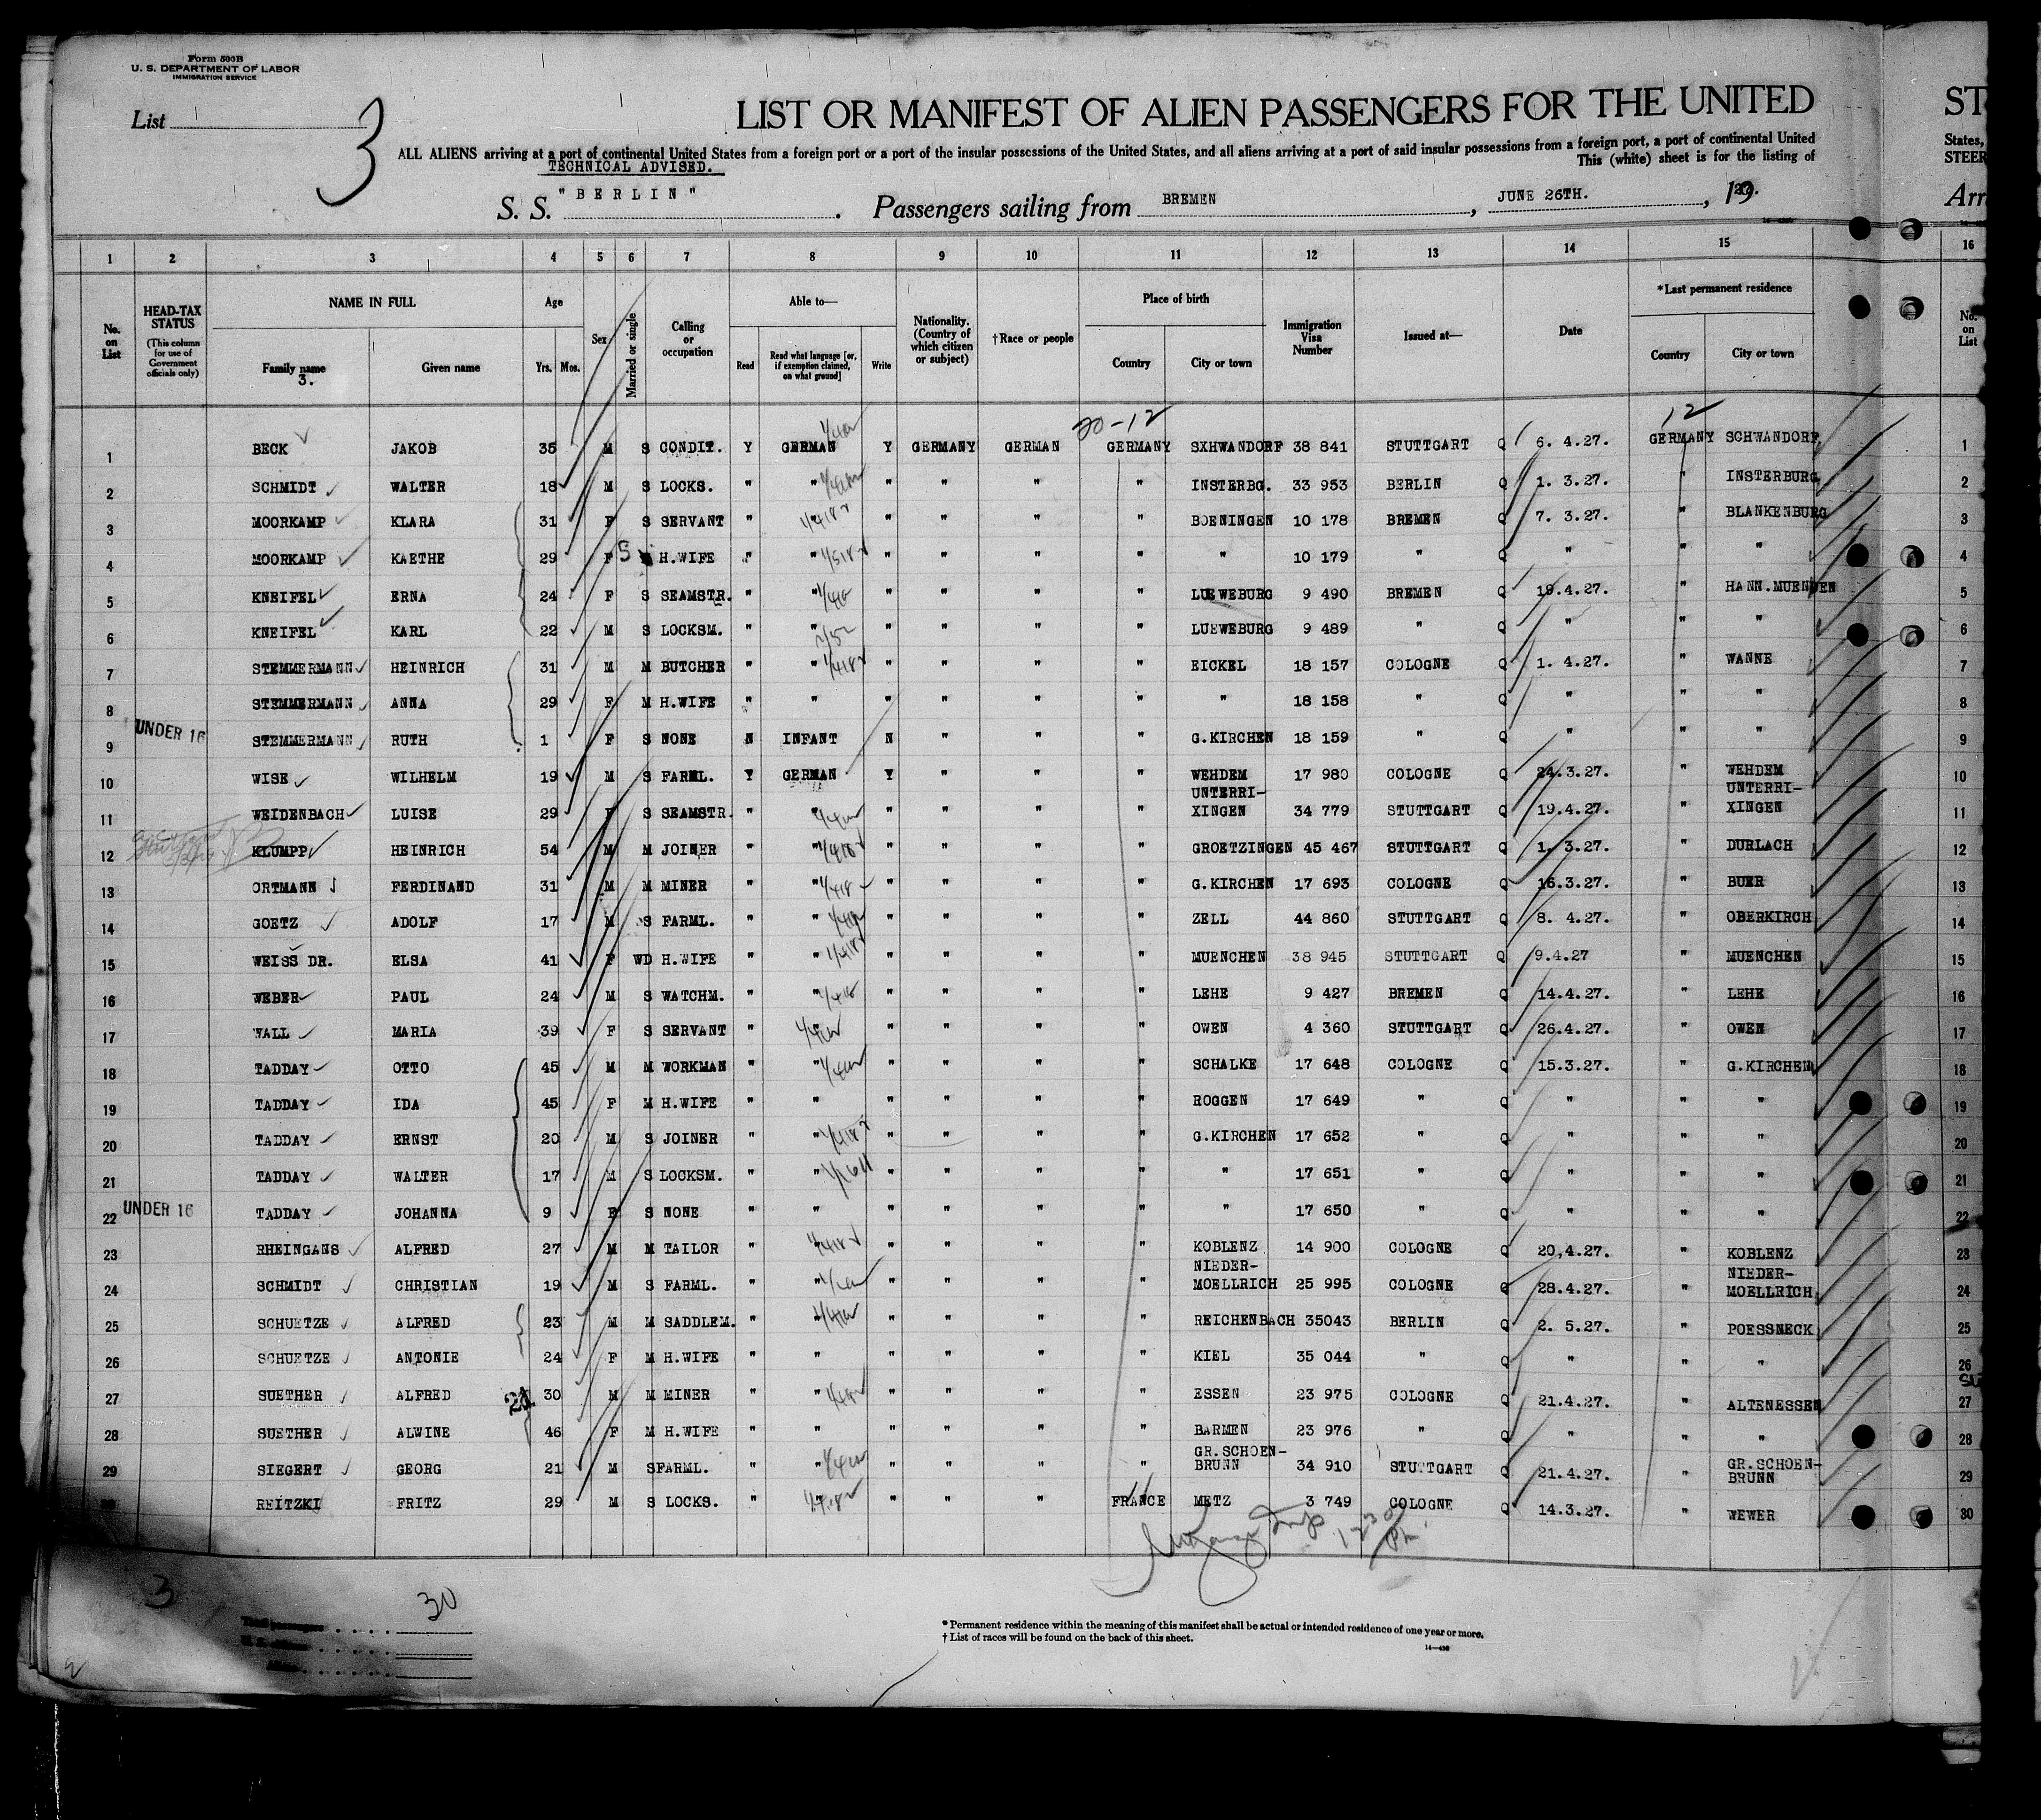 Form 500B
U. S. DEPARTMENT OF LABOR
IMMIGRATION SERVICE
List 3
LIST OR MANIFEST OF ALIEN PASSENGERS FOR THE UNITED
ALL ALIENS arriving at a port of continental United States from a foreign port or a port of the insular possessions of the United States, and all aliens arriving at a port of said insular possessions from a foreign port, a port of continental United
TECHNICAL ADVISED.
This (white) sheet is for the listing of
S. S. "BERLIN". Passengers sailing from BREMEN, JUNE 26TH., 1927.
ST
States,
STEER
Arr
1 2 3 4 5 6 7 8 9 10 11 12 13 14 15 16
No. on List
HEAD-TAX STATUS
(This column for use of Government officials only)
NAME IN FULL
Family name
3.
Given name
Age
Yrs. Mos.
Sex
Married or single
Calling or occupation
Able to—
Read
Read what language [or, if exemption claimed, on what ground]
Write
Nationality. (Country of which citizen or subject)
†Race or people
Place of birth
Country City or town
Immigration Visa Number
Issued at—
Date
*Last permanent residence
Country City or town
No. on List
20-12 12
1 BECK JAKOB 35 M S CONDIT. Y GERMAN Y GERMANY GERMAN GERMANY SXHWANDORF 38 841 STUTTGART Q 6. 4.27. GERMANY SCHWANDORF 1
2 SCHMIDT WALTER 18 M S LOCKS. " " " " " " INSTERBG. 33 953 BERLIN Q 1. 3.27. " INSTERBURG 2
3 MOORKAMP KLARA 31 F S SERVANT " " " " " " BOENINGEN 10 178 BREMEN Q 7. 3.27. " BLANKENBURG 3
4 MOORKAMP KAETHE 29 F S H.WIFE " " " " " " " 10 179 " Q " " " 4
5 KNEIFEL ERNA 24 F S SEAMSTR. " " " " " " LUEWEBURG 9 490 BREMEN Q 19.4.27. " HANN.MUENDEN 5
6 KNEIFEL KARL 22 M S LOCKSM. " " " " " " LUEWEBURG 9 489 " Q " " " 6
7 STEMMERMANN HEINRICH 31 M M BUTCHER " " " " " " EICKEL 18 157 COLOGNE Q 1. 4.27. " WANNE 7
8 STEMMERMANN ANNA 29 F M H.WIFE " " " " " " " 18 158 " Q " " " 8
9 UNDER 16 STEMMERMANN RUTH 1 F S NONE N INFANT N " " " G.KIRCHEN 18 159 " Q " " " 9
10 WISE WILHELM 19 M S FARML. Y GERMAN Y " " " WEHDEM 17 980 COLOGNE Q 24.3.27. " WEHDEM 10
UNTERRI- UNTERRI-
11 WEIDENBACH LUISE 29 F S SEAMSTR. " " " " " " XINGEN 34 779 STUTTGART Q 19.4.27. " XINGEN 11
12 KLUMPP HEINRICH 54 M M JOINER " " " " " " GROETZINGEN 45 467 STUTTGART Q 1. 3.27. " DURLACH 12
13 ORTMANN FERDINAND 31 M M MINER " " " " " " G.KIRCHEN 17 693 COLOGNE Q 16.3.27. " BUER 13
14 GOETZ ADOLF 17 M S FARML. " " " " " " ZELL 44 860 STUTTGART Q 8. 4.27. " OBERKIRCH 14
15 WEISS DR. ELSA 41 F WD H.WIFE " " " " " " MUENCHEN 38 945 STUTTGART Q 9.4.27 " MUENCHEN 15
16 WEBER PAUL 24 M S WATCHM. " " " " " " LEHE 9 427 BREMEN Q 14.4.27. " LEHE 16
17 WALL MARIA 39 F S SERVANT " " " " " " OWEN 4 360 STUTTGART Q 26.4.27. " OWEN 17
18 TADDAY OTTO 45 M M WORKMAN " " " " " " SCHALKE 17 648 COLOGNE Q 15.3.27. " G.KIRCHEN 18
19 TADDAY IDA 45 F M H.WIFE " " " " " " ROGGEN 17 649 " Q " " " 19
20 TADDAY ERNST 20 M S JOINER " " " " " " G.KIRCHEN 17 652 " Q " " " 20
21 TADDAY WALTER 17 M S LOCKSM. " " " " " " " 17 651 " Q " " " 21
22 UNDER 16 TADDAY JOHANNA 9 F S NONE " " " " " " " 17 650 " Q " " " 22
23 RHEINGANS ALFRED 27 M M TAILOR " " " " " " KOBLENZ 14 900 COLOGNE Q 20,4.27. " KOBLENZ 23
NIEDER- NIEDER-
24 SCHMIDT CHRISTIAN 19 M S FARML. " " " " " " MOELLRICH 25 995 COLOGNE Q 28.4.27. " MOELLRICH 24
25 SCHUETZE ALFRED 23 M M SADDLEM. " " " " " " REICHENBACH 35043 BERLIN Q 2. 5.27. " POESSNECK 25
26 SCHUETZE ANTONIE 24 F M H.WIFE " " " " " " KIEL 35 044 " Q " " " 26
27 SUETHER ALFRED 30 M M MINER " " " " " " ESSEN 23 975 COLOGNE Q 21.4.27. " ALTENESSEN 27
28 SUETHER ALWINE 46 F M H.WIFE " " " " " " BARMEN 23 976 " Q " " " 28
GR.SCHOEN- GR.SCHOEN-
29 SIEGERT GEORG 21 M S FARML. " " " " " " BRUNN 34 910 STUTTGART Q 21.4.27. " BRUNN 29
REITZKI FRITZ 29 M S LOCKS. " " " " " FRANCE METZ 3 749 COLOGNE Q 14.3.27. " WEWER 30
3
30
*Permanent residence within the meaning of this manifest shall be actual or intended residence of one year or more.
†List of races will be found on the back of this sheet.